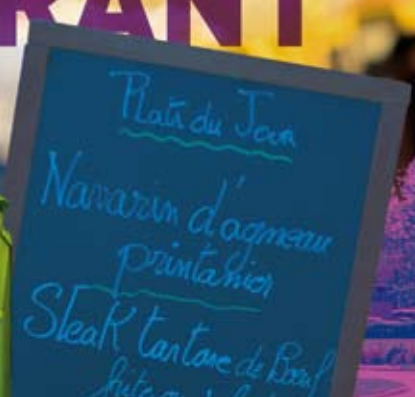 RANT
Plats du Jour
Navarin d'agneau
printanier
Steak tartare de Boeuf
frite